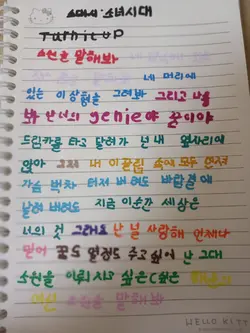 소녀시대
Turn it up
소원을 말해봐
네 머리에
있는 이상형을 그려봐 그리고 나를
봐 난 너의 genie야 꿈이야
드림카를 타고 달려가 넌 내 옆자리에
앉아 그저 내 이끌림 속에 모두 던져
가슴 벅차 터져 버려도 바람결에
날려 버려도 지금 이순간 세상은
너의 것 그래요 난 널 사랑해 언제나
믿어 꿈도 열정도 주고 싶어 난 그대
소원을 이뤄 주고 싶은 싶은
소원을 말해봐
HELLO KITTY